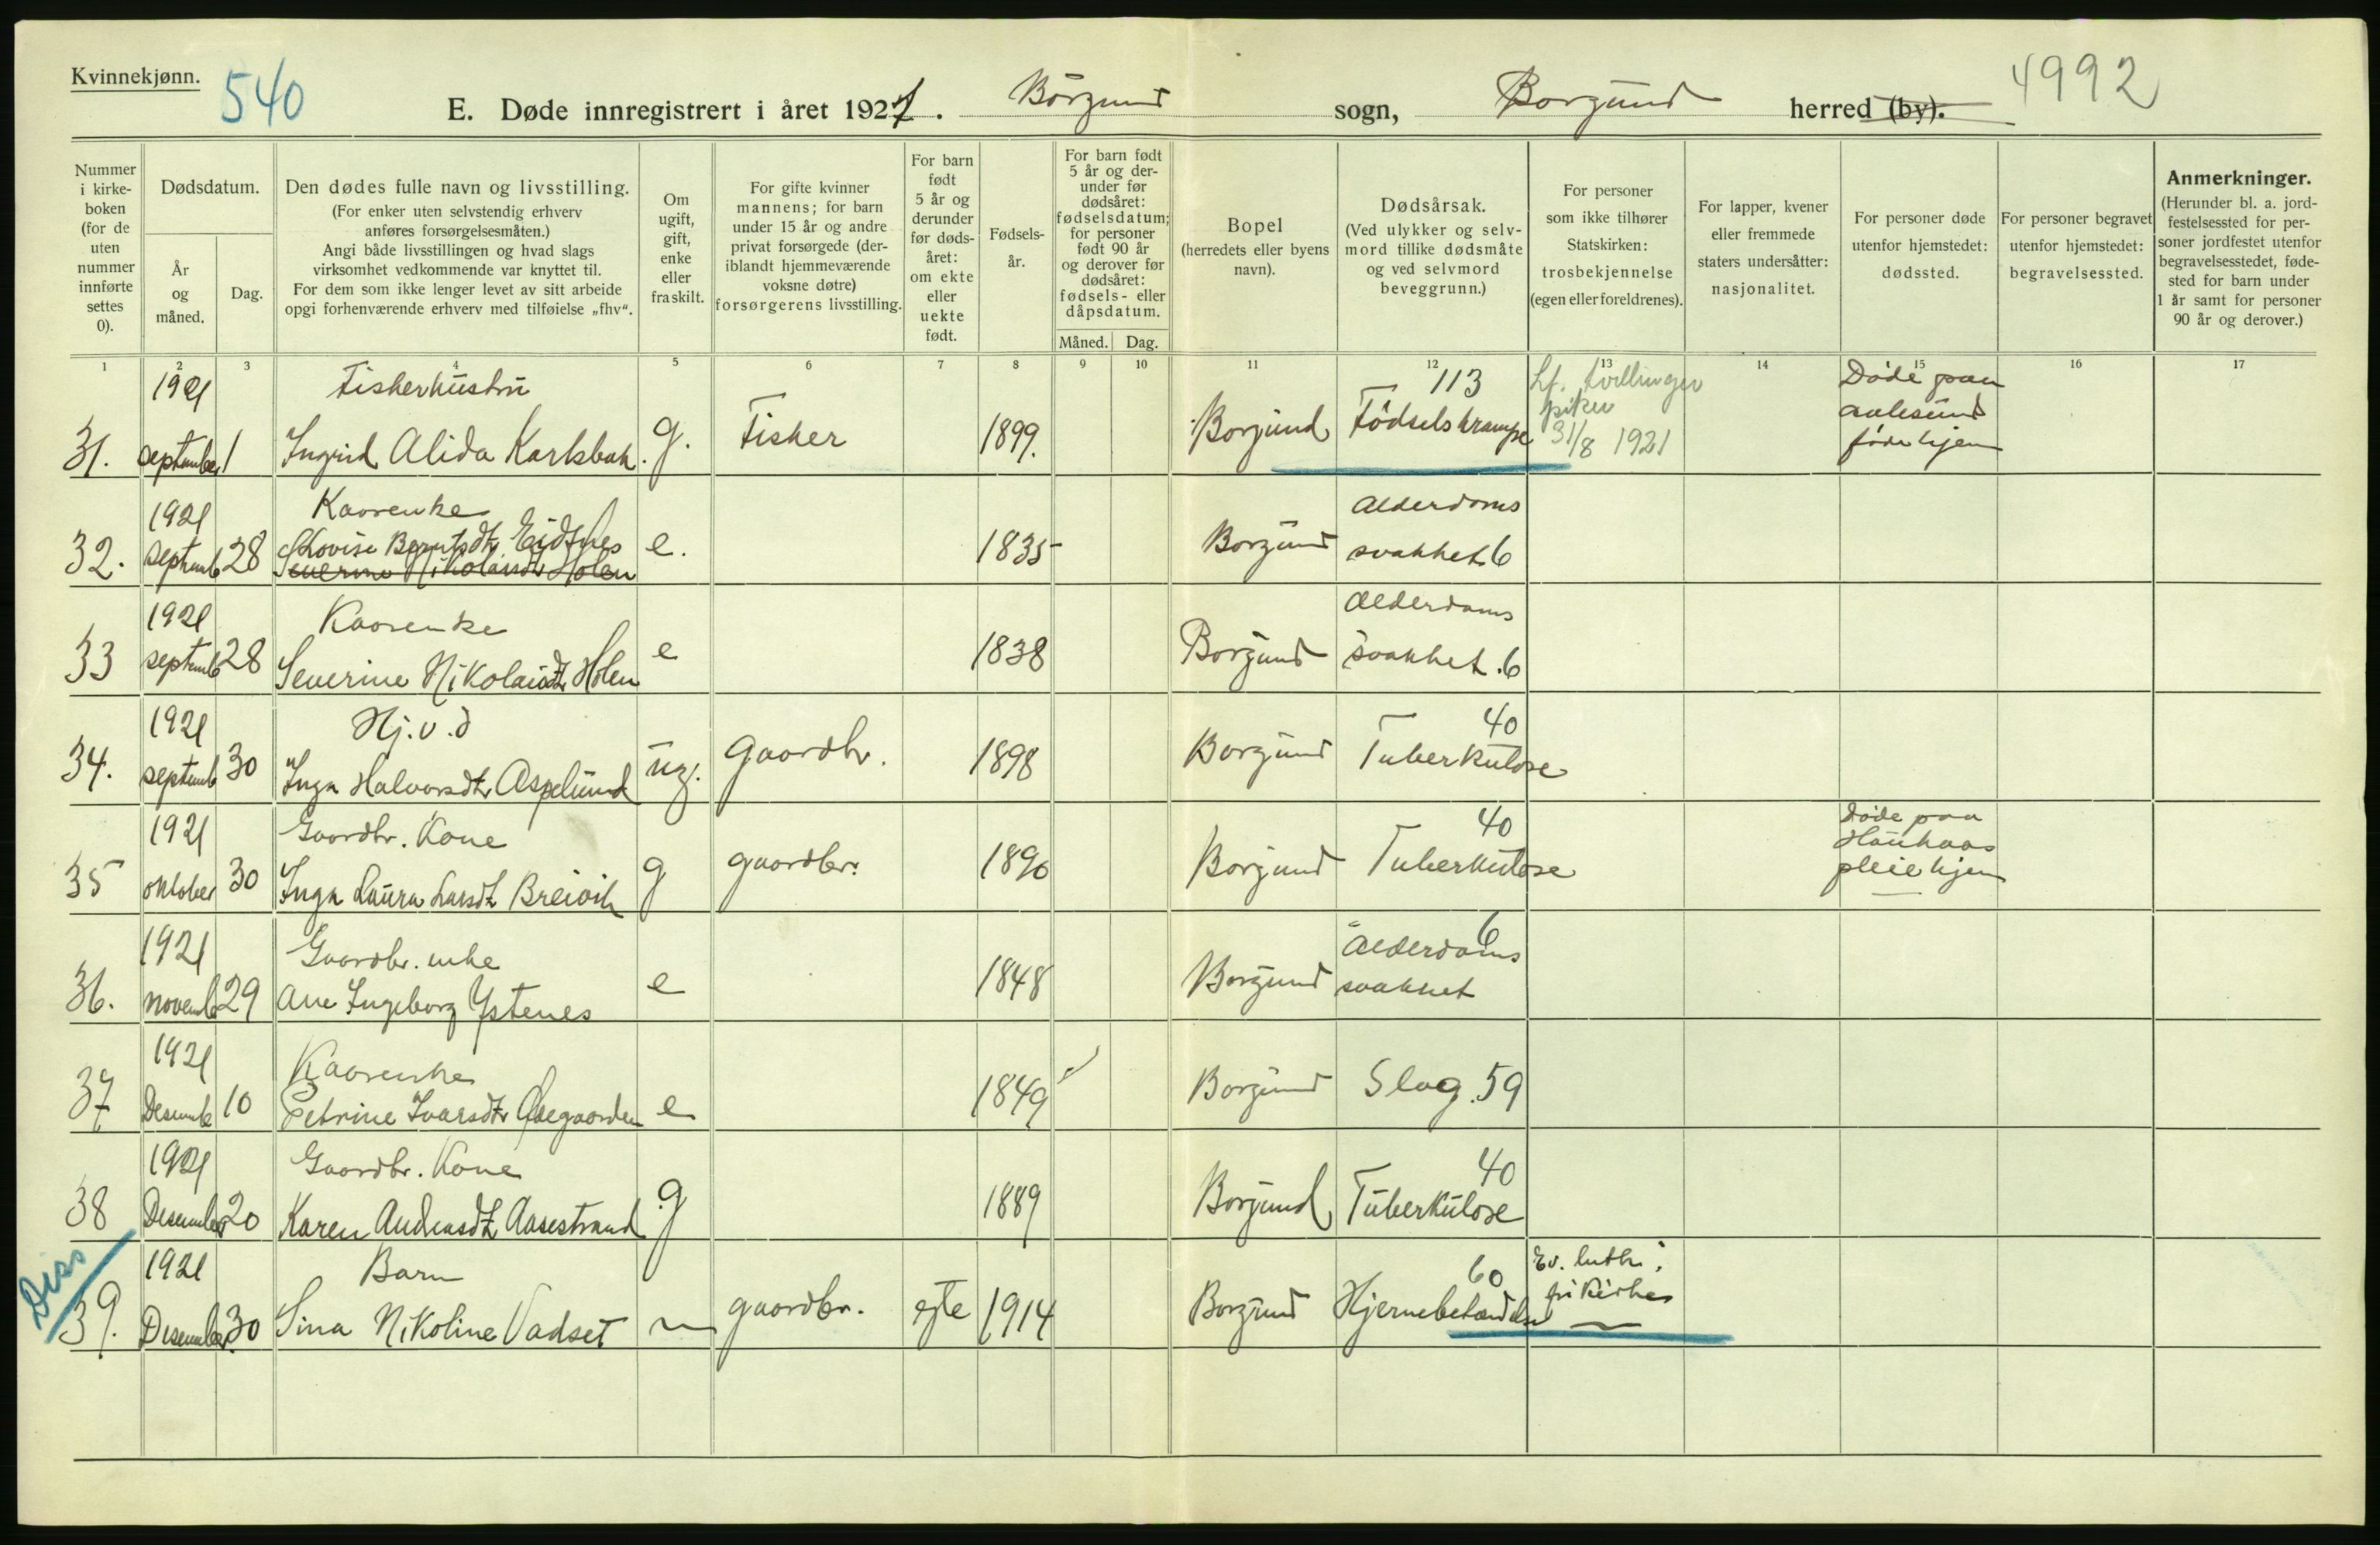 Kvinnekjønn.
540
E. Døde innregistrert i året 1921. Borgund sogn, Borgund herred (by).
4992
Nummer i kirkeboken (for de uten nummer innførte settes 0).
Dødsdatum.
År og måned.
Dag.
Den dødes fulle navn og livsstilling.
(For enker uten selvstendig erhverv anføres forsørgelsesmåten.)
Angi både livsstillingen og hvad slags virksomhet vedkommende var knyttet til.
For dem som ikke lenger levet av sitt arbeide opgi forhenværende erhverv med tilføielse „fhv“.
Om ugift, gift, enke eller fraskilt.
For gifte kvinner mannens; for barn under 15 år og andre privat forsørgede (deriblandt hjemmeværende voksne døtre) forsørgerens livsstilling.
For barn født 5 år og derunder før dødsåret: om ekte eller uekte født.
Fødselsår.
For barn født 5 år og derunder før dødsåret: fødselsdatum; for personer født 90 år og derover før dødsåret: fødsels- eller dåpsdatum.
Måned. Dag.
Bopel (herredets eller byens navn).
Dødsårsak. (Ved ulykker og selvmord tillike dødsmåte og ved selvmord beveggrunn.)
For personer som ikke tilhører Statskirken: trosbekjennelse (egen eller foreldrenes).
For lapper, kvener eller fremmede staters undersåtter: nasjonalitet.
For personer døde utenfor hjemstedet: dødssted.
For personer begravet utenfor hjemstedet: begravelsessted.
Anmerkninger. (Herunder bl. a. jordfestelsessted for personer jordfestet utenfor begravelsesstedet, fødested for barn under 1 år samt for personer 90 år og derover.)
1 2 3 4 5 6 7 8 9 10 11 12 13 14 15 16 17
1921 Fiskerhustru 113 Lf. tvillinger Døde paa
piker aalesund
31. september 1 Ingrid Alida Karlsbak. g. Fisker 1899. Borgund Fødselskrampe 31/8 1921 fødehjem
1921 Kaarenke Alderdoms
32. septemb 28 Lovise Berntsdtr. Eidsnes e. 1835 Borgund svakhet 6
Severine Nikolaisdtr Holen
1921 Kaarenke Alderdoms
33 septemb 28 Severine Nikolaisdtr Holen e 1838 Borgund svakhet. 6
1921 Hj.v.d 40
34. septemb 30 Inga Halvorsdtr Aspelund ug. gaardbr. 1898 Borgund Tuberkulose
1921 Gaardbr. Kone 40 Døde paa
Haukaas
35 oktober 30 Inga Laura Larsdtr Breivik g gaardbr. 1890 Borgund Tuberkulose pleiehjem
1921 Gaardbr. enke Alderdoms 6
36. novemb 29 Ane Ingeborg Ystenes e 1848 Borgund svakhet
1921 Kaarenke
37 Desemb 10 Petrine Ivarsdtr Ødegaarden e 1849 Borgund Slag. 59
1921 Gaardbr. Kone 40
38 Desember 20 Karen Andreasdtr Aasestrand g 1889 Borgund Tuberkulose
Diss
1921 Barn 60 Ev. luth.
frikirke
39. Desember 30 Sina Nikoline Vadset ~ gaardbr. egte 1914 Borgund Hjernebetændelse